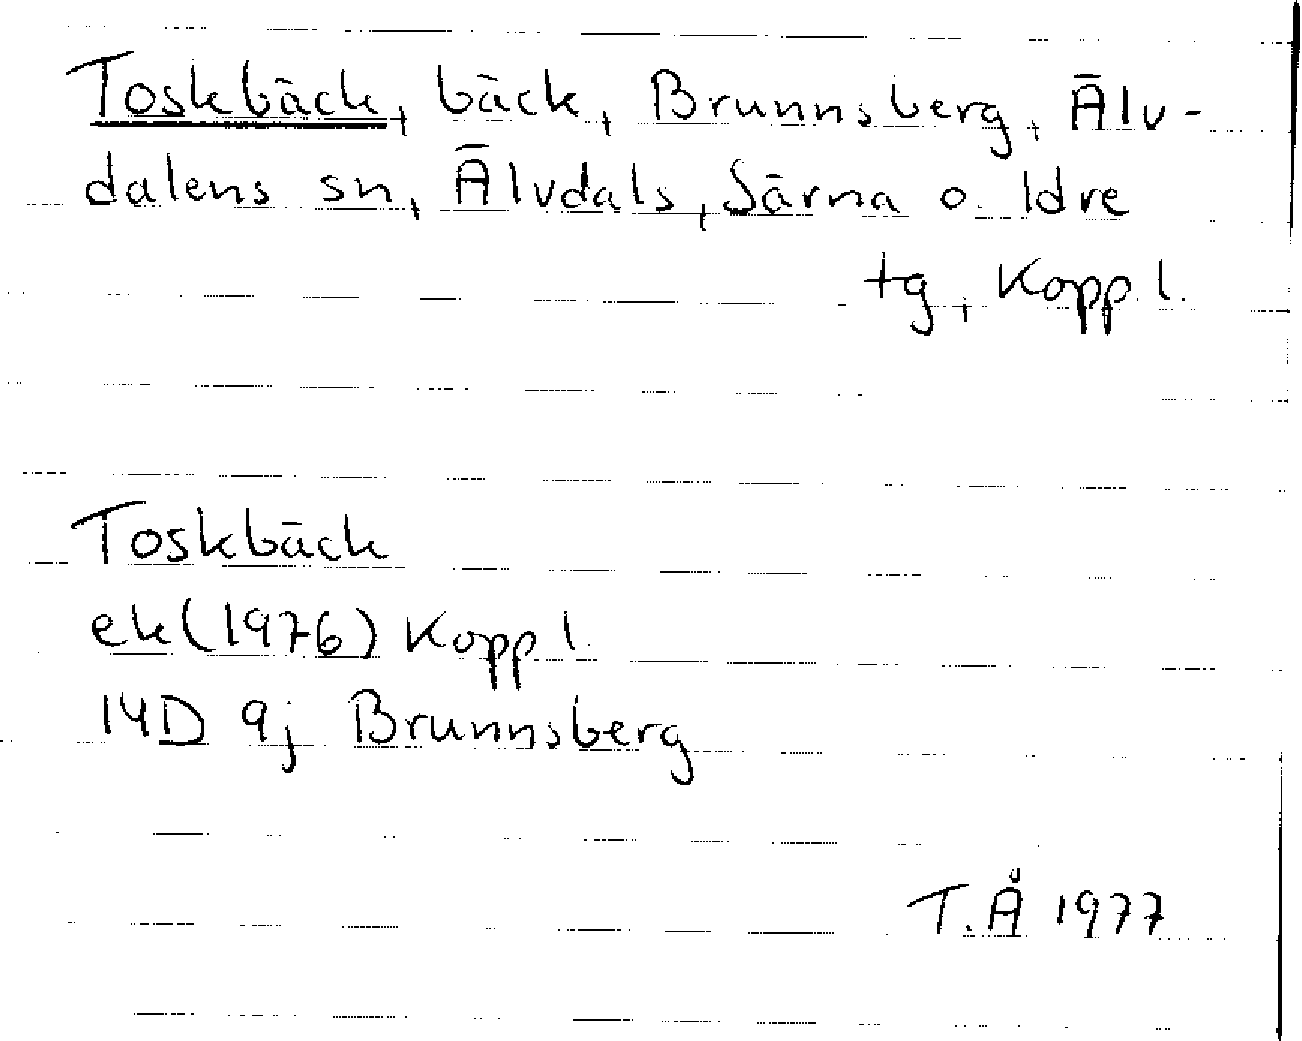 Toskbäck, bäck, Brunnsberg, Älv-
dalens sn, Älvdals, Särna o. Idre
tg, Kopp l.
Toskbäck
ek (1976) Kopp l.
14D 9j Brunnsberg
T.Å 1977